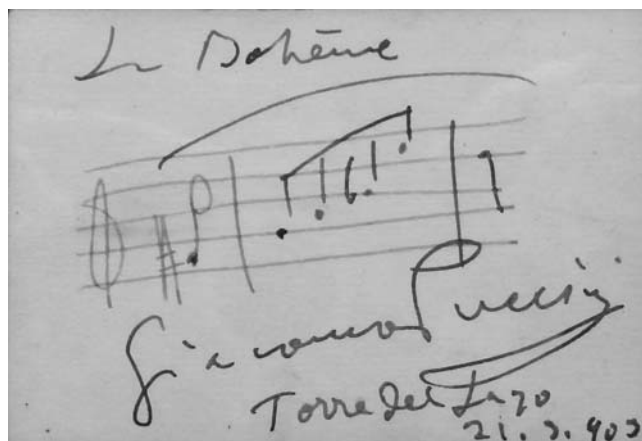 La Bohème
Giacomo Puccini
Torre del Lago
21.3.903